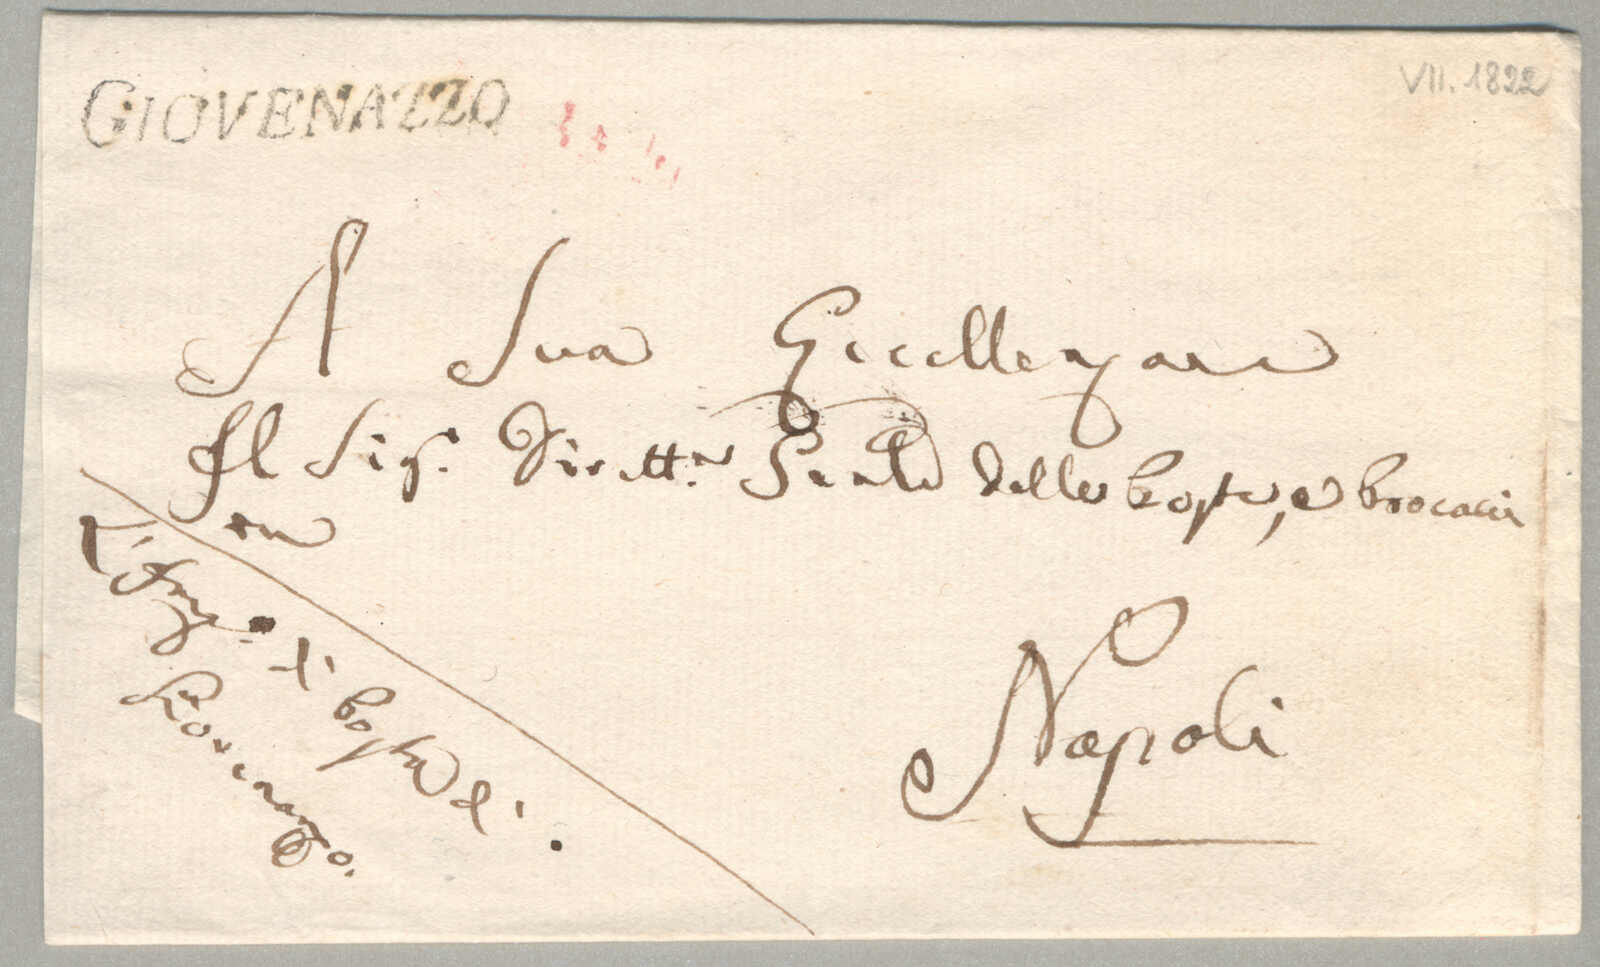 GIOVENAZZO
VII. 1822
A Sua Eccellenza
Il Sig.r Dirett.re Gen.le delle Poste, e Procacci
in
Napoli
L'Imp.o di Posta di
Giovenazzo.